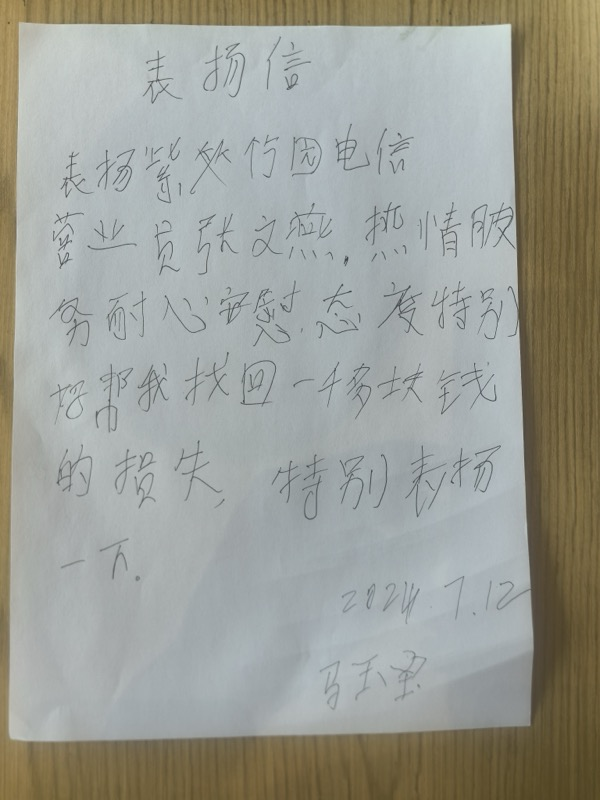 表扬信
表扬紫竹园电信
营业员张文燕,热情服
务耐心安慰,态度特别
好帮我找回一千多块钱
的损失,特别表扬
一下.
2024.7.12
马玉圣